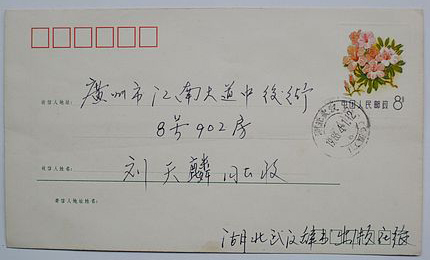 中国人民邮政
8分
收信人地址：廣州市江南大道中後街
8号902房
收信人姓名：刘天麟同志收
寄信人地址姓名：
湖北武汉辞书出版